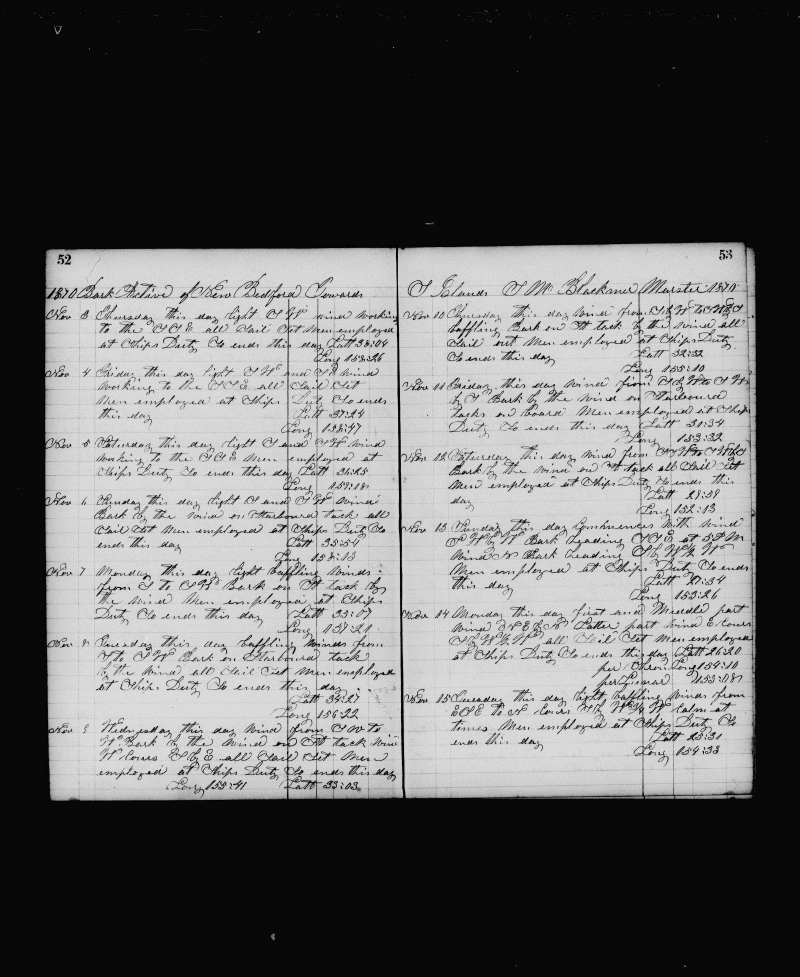 52
1870 Bark Active of New Bedford Towards
Nov 3 Thursday this day light S W wind working
to the S S E all Sail Set Men employed
at Ships Duty So ends this day Latt 38:04
Long 158:26
Nov 4 Friday this day light S W and S wind
working to the S S E all Sail Set
Men employed at Ships Duty So ends
this day Latt 37:24
Long 158:47
Nov 5 Saturday this day light S and S W Wind
working to the S S E Men employed at
Ships Duty So ends this day Latt 36:25
Long 159:18
Nov 6 Sunday this day light S and S W Wind
Bark by the Wind on Starbourd tack all
Sail Set Men employed at Ships Duty So
ends this day Latt 35:54
Long 158:13
Nov 7 Monday this day light baffling Winds
from S to S W Bark on tack by
the Wind Men employed at Ships
Duty So ends this day Latt 35:07
Long 157:21
Nov 8 Tuesday this day baffling Winds from
to S W Bark on Starbourd tack
by the Wind all Sail Set Men employed
at Ships Duty So ends this day
Latt 34:27
Long 156:22
Nov 9 Wednesday this day Wind from S W to
W Bark by the Wind on tack Wind
W Cours S E all Sail Set Men
employed at Ships Duty So ends this day
Long 155:41 Latt 33:03
53
S Islands S M Blackmer Marster 1870
Nov 10 Thursday this day Wind from
baffling Bark on tack by the Wind all
Sail out Men employed at Ships Duty
So ends this day Latt 32:32
Long 155:10
Nov 11 Friday this day Wind from
by S Bark by the Wind on Starbourd
Tacks on board Men employed at Ships
Duty So ends this day Latt 31:34
Long 153:32
Nov 12 Saturday this day Wind from
Bark by the Wind on tack all Sail Set
Men employed at Ships Duty So ends this
day Latt 29:39
Long 152:13
Nov 13 Sunday this day Commences With Wind
Bark heading S S E at 5 P M
Wind Bark heading
Men employed at Ships Duty So ends
this day Latt 27:34
Long 153:26
Nov 14 Monday this day first and Middle part
Wind Latter part Wind E Cours
all Sail Set Men employed
at Ships Duty So ends this day Latt 26:20
per Chron Long 154:10
per Lunar 153:08
Nov 15 Tuesday this day light baffling Winds from
E S E to Cours Calm at
times Men employed at Ships Duty So
ends this day Latt 25:31
Long 154:33